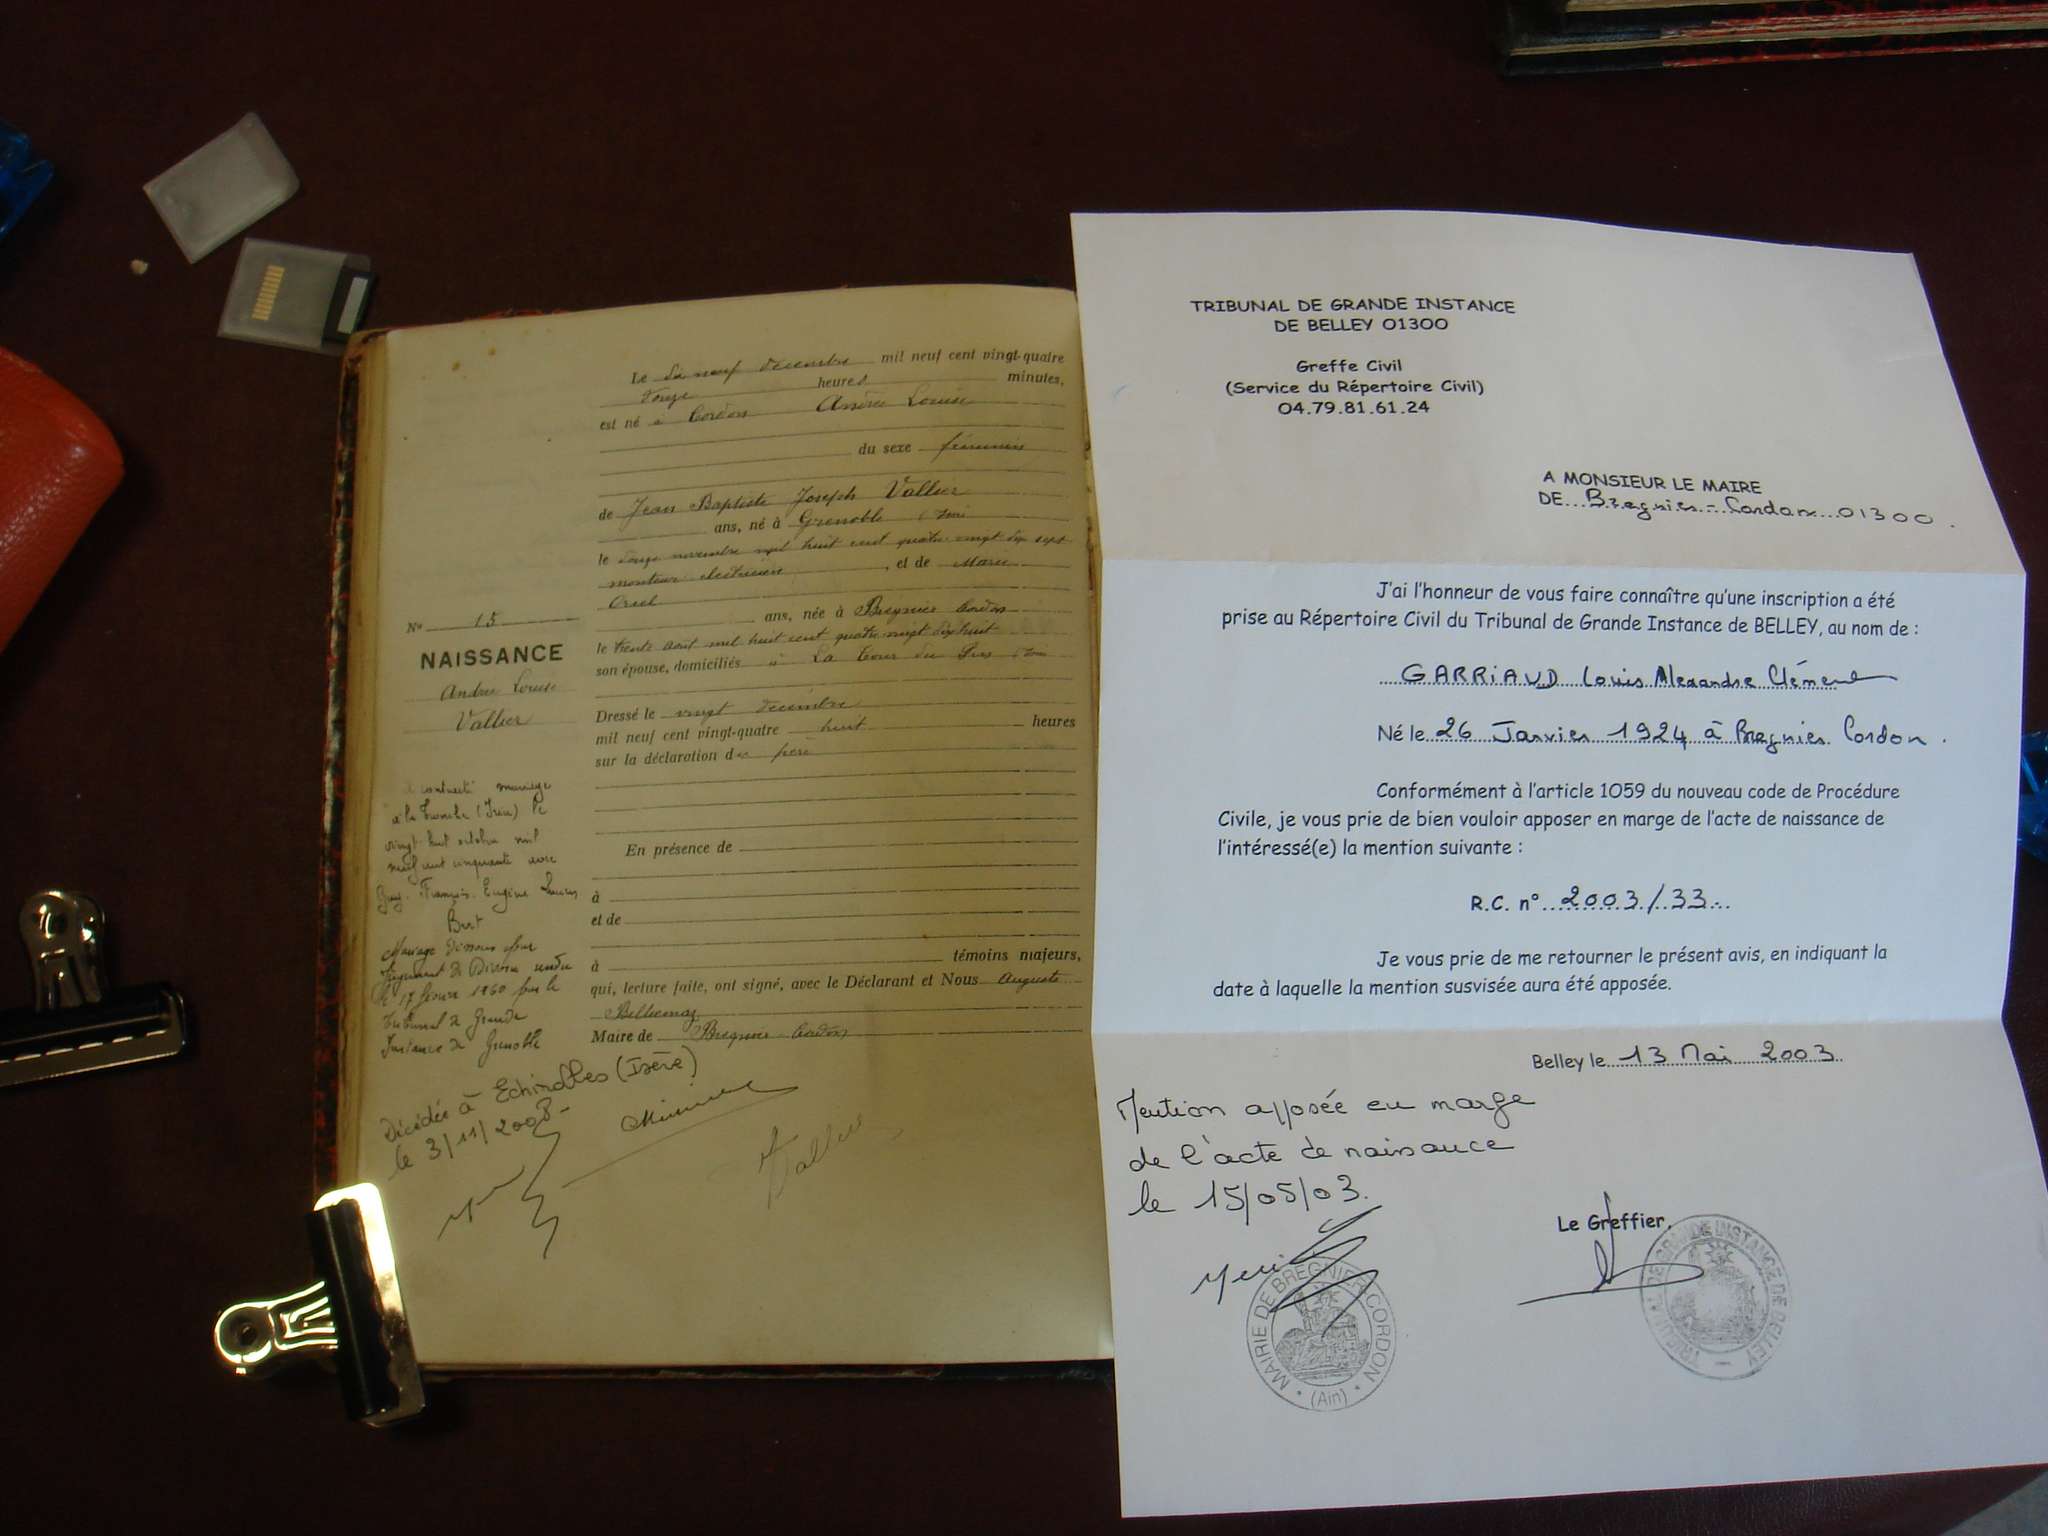 Le dix neuf décembre mil neuf cent vingt-quatre
douze heures minutes,
est né à Cordon Andrée Louise
du sexe féminin
de Jean Baptiste Joseph Vallier
ans, né à Grenoble Isère
le douze novembre mil huit cent quatre vingt dix sept
monteur électricien, et de Marie
ans, née à Bregnier Cordon
le trente août mil huit cent quatre vingt dix huit
son épouse, domiciliés à La Tour du Pin Isère
Dressé le vingt décembre
mil neuf cent vingt-quatre huit heures
sur la déclaration du père
En présence de
à
et de
à témoins majeurs,
qui, lecture faite, ont signé, avec le Déclarant et Nous Auguste
Maire de Bregnier-Cordon
No 15
NAISSANCE
Andrée Louise
Vallier
a contracté mariage
à la Tronche (Isère) le
vingt huit octobre mil
neuf cent cinquante avec
Guy François Eugène
Mariage dissous par
Jugement de Divorce rendu
le 17 février 1960 par le
Tribunal de Grande
Instance de Grenoble
Décédée à Echirolles (Isère)
le 3/11/2008-
Vallier
TRIBUNAL DE GRANDE INSTANCE
DE BELLEY 01300
Greffe Civil
(Service du Répertoire Civil)
04.79.81.61.24
A MONSIEUR LE MAIRE
DE Bregnier-Cordon 01300.
J'ai l'honneur de vous faire connaître qu'une inscription a été
prise au Répertoire Civil du Tribunal de Grande Instance de BELLEY, au nom de :
GARRIAUD Louis Alexandre Clément
Né le 26 Janvier 1924 à Bregnier Cordon.
Conformément à l'article 1059 du nouveau code de Procédure
Civile, je vous prie de bien vouloir apposer en marge de l'acte de naissance de
l'intéressé(e) la mention suivante :
R.C. n° 2003/33
Je vous prie de me retourner le présent avis, en indiquant la
date à laquelle la mention susvisée aura été apposée.
Belley le 13 Mai 2003
Mention apposée en marge
de l'acte de naissance
le 15/05/03.
Le Greffier,
MAIRIE DE BREGNIER CORDON
(Ain)
TRIBUNAL DE GRANDE INSTANCE DE BELLEY